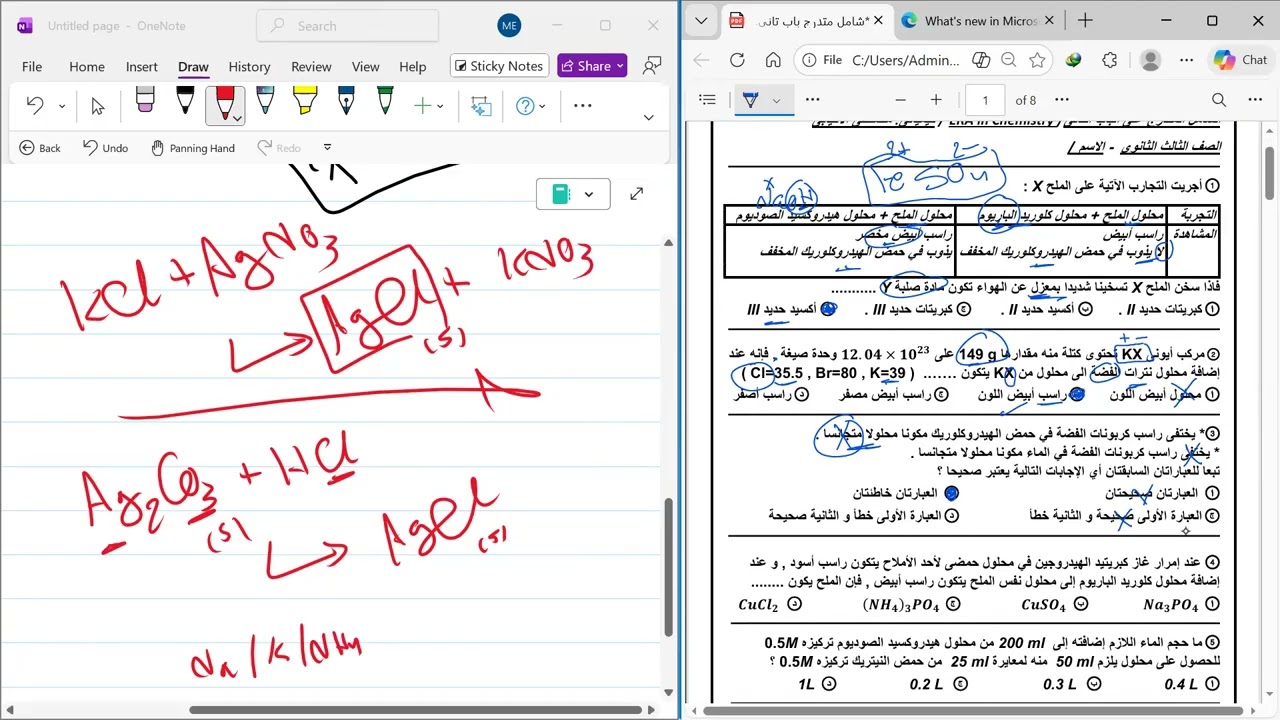 Untitled page - OneNote
Search
ME
File Home Insert Draw History Review View Help Sticky Notes Share
Back Undo Panning Hand Redo
KCl + AgNO3
AgCl(s) + KNO3
Ag2CO3(s) + HCl
AgCl(s)
Na / K / NH4
*شامل متدرج باب تانى.
What's new in Micros
File C:/Users/Admin...
Chat
1 of 8
الصف الثالث الثانوى - الاسم /
2+ 2-
Fe SO4
NaOH
① أجريت التجارب الآتية على الملح X :
التجربة محلول الملح + محلول كلوريد الباريوم محلول الملح + محلول هيدروكسيد الصوديوم
المشاهدة راسب أبيض راسب أبيض مخضر
لا يذوب في حمض الهيدروكلوريك المخفف يذوب في حمض الهيدروكلوريك المخفف
فاذا سخن الملح X تسخينا شديدا بمعزل عن الهواء تكون مادة صلبة Y ..........
أ كبريتات حديد II . ب أكسيد حديد II . ج كبريتات حديد III . أكسيد حديد III
② مركب أيونى KX تحتوى كتلة منه مقدارها 149 g على 12.04 × 10^23 وحدة صيغة , فإنه عند
إضافة محلول نترات الفضة الى محلول من KX يتكون ....... ( Cl=35.5 , Br=80 , K=39 )
أ محلول أبيض اللون راسب أبيض اللون ج راسب أبيض مصفر د راسب أصفر
③ * يختفى راسب كربونات الفضة في حمض الهيدروكلوريك مكونا محلولا متجانسا .
* يختفى راسب كربونات الفضة في الماء مكونا محلولا متجانسا .
تبعا للعباراتان السابقتان أي الإجابات التالية يعتبر صحيحا ؟
أ العبارتان صحيحتان العبارتان خاطئتان
ج العبارة الأولى صحيحة و الثانية خطأ د العبارة الأولى خطأ و الثانية صحيحة
④ عند إمرار غاز كبريتيد الهيدروجين في محلول حمضى لأحد الأملاح يتكون راسب أسود , و عند
إضافة محلول كلوريد الباريوم إلى محلول نفس الملح يتكون راسب أبيض , فإن الملح يكون ........
أ Na3PO4 ب CuSO4 ج (NH4)3PO4 د CuCl2
⑤ ما حجم الماء اللازم إضافته إلى 200 ml من محلول هيدروكسيد الصوديوم تركيزه 0.5M
للحصول على محلول يلزم 50 ml منه لمعايرة 25 ml من حمض النيتريك تركيزه 0.5M ؟
أ 0.4 L ب 0.3 L ج 0.2 L د 1L